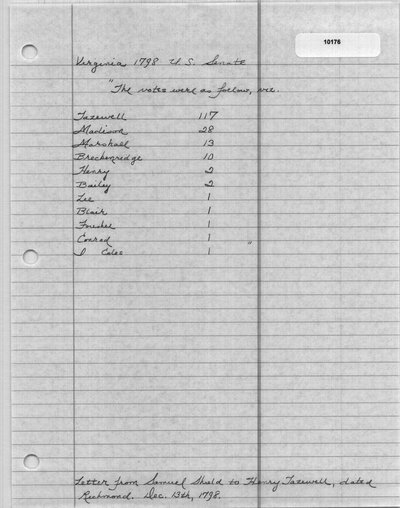 10176
Virginia 1798 U.S. Senate
"The votes were as follow, viz.
Tazewell 117
Madison 28
Marshall 13
Breckenridge 10
Henry 2
Bailey 2
Lee 1
Blair 1
Foushee 1
Conrad 1
I Coles 1 "
Letter from Samuel Sheild to Henry Tazewell, dated
Richmond. Dec. 13th, 1798.